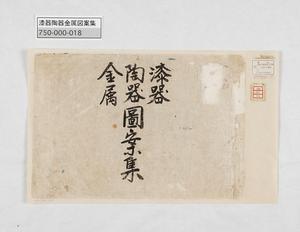 漆器陶器金属図案集
750-000-018
漆器
陶器圖案集
金属